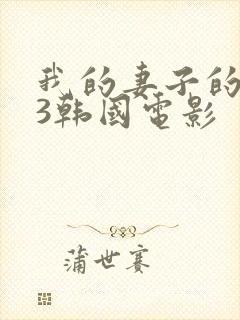 我的妻子的
3韩國電影
蒲世赛